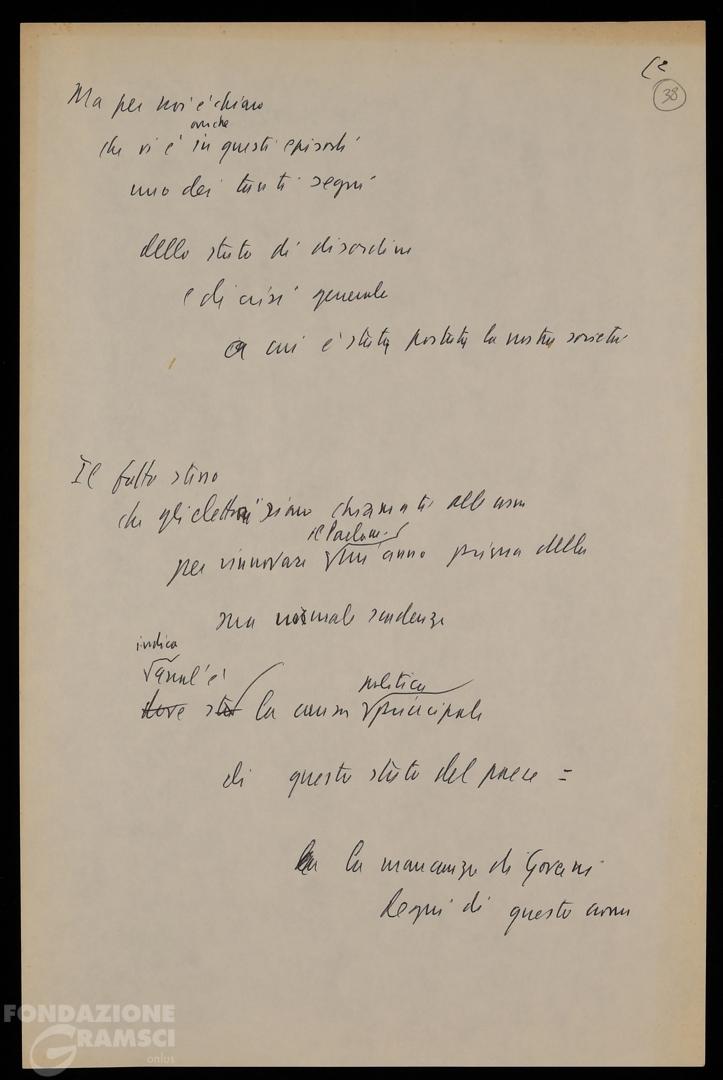 (2
38
Ma per noi è chiaro
anche
che vi è in questi episodi
uno dei tanti segni
dello stato di disordine
e di crisi generale
a cui è stata portata la nostra società
Il fatto stesso
che gli elettori siano chiamati alle urne
il Parlam.
per rinnovare un anno prima della
sua normale scadenza
indica
qual'è
dove sta la causa principale
politica
di questo stato del paese =
la mancanza di Governi
degni di questo nome
FONDAZIONE
GRAMSCI
onlus